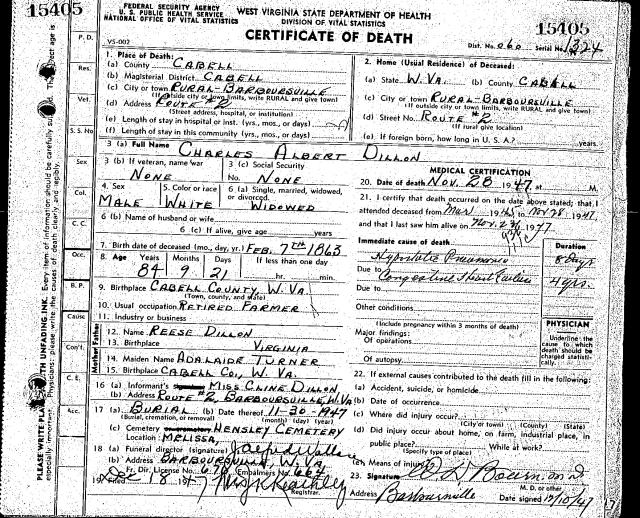 15405
FEDERAL SECURITY AGENCY
U. S. PUBLIC HEALTH SERVICE
NATIONAL OFFICE OF VITAL STATISTICS
WEST VIRGINIA STATE DEPARTMENT OF HEALTH
DIVISION OF VITAL STATISTICS
CERTIFICATE OF DEATH
15405
VS-002
Dist. No. 060 Serial No. 1324
1. Place of Death:
(a) County CABELL
(b) Magisterial District CABELL
(c) City or town RURAL-BARBOURSVILLE
(If outside city or town limits, write RURAL and give town)
(d) Address ROUTE #2
(Street address, hospital or institution)
(e) Length of stay in hospital or inst. (yrs., mos., or days)
(f) Length of stay in this community (yrs., mos., or days)
2. Home (Usual Residence) of Deceased:
(a) State W. VA. (b) County CABELL
(c) City or town RURAL-BARBOURSVILLE
(If outside city or town limits, write RURAL and give town)
(d) Street No. ROUTE #2
(If rural give location)
(e) If foreign born, how long in U. S. A.? years.
3 (a) Full Name CHARLES ALBERT DILLON
3 (b) If veteran, name war NONE
3 (c) Social Security No. NONE
4. Sex MALE
5. Color or race WHITE
6 (a) Single, married, widowed, or divorced. WIDOWED
6 (b) Name of husband or wife
6 (c) If alive, give age years
7. Birth date of deceased (mo., day, yr.) FEB. 7TH 1863
8. Age Years 84 Months 9 Days 21 If less than one day hr. min.
9. Birthplace CABELL COUNTY, W. VA.
(Town, county, and state)
10. Usual occupation RETIRED FARMER
11. Industry or business
12. Name REESE DILLON
13. Birthplace VIRGINIA
14. Maiden Name ADALAIDE TURNER
15. Birthplace CABELL CO., W. VA.
Mother Father
16 (a) Informant's MISS CLINE DILLON,
(b) Address ROUTE #2, BARBOURSVILLE, W. VA
17 (a) BURIAL (b) Date thereof 11-30-1947
(Burial, cremation, or removal) (month) (day) (year)
(c) Cemetery HENSLEY CEMETERY
Location MELISSA,
18 (a) Funeral director (signature) Wallace
(b) Address BARBOURSVILLE, W. VA
Fr. Dir. License No. Embalmers No.
19. Filed Dec 18 1947
Registrar.
MEDICAL CERTIFICATION
20. Date of death NOV. 28 1947 at M.
21. I certify that death occurred on the above stated; that I
attended deceased from 1945 to Nov 28 1947
and that I last saw him alive on Nov. 1947
Immediate cause of death
Duration
Hypostatic Pneumonia 8 days
Due to Congestive Heart Failure 4 yrs.
Due to
Other conditions
(Include pregnancy within 3 months of death)
Major findings:
Of operations
Of autopsy
PHYSICIAN
Underline the cause to which death should be charged statistically.
22. If external causes contributed to the death fill in the following:
(a) Accident, suicide, or homicide
(b) Date of occurrence
(c) Where did injury occur?
(City or town) (County) (State)
(d) Did injury occur about home, on farm, industrial place, in
public place? While at work?
(Specify type of place)
(e) Means of injury
23. Signature W D Bourn. M.D.
M. D. or other
Address Barboursville Date signed 12/10/47
P. D.
Res.
Vet.
S. S. No
Sex
Col.
C. C.
Occ.
B. P.
Cause
Con't.
C. E.
Acc.